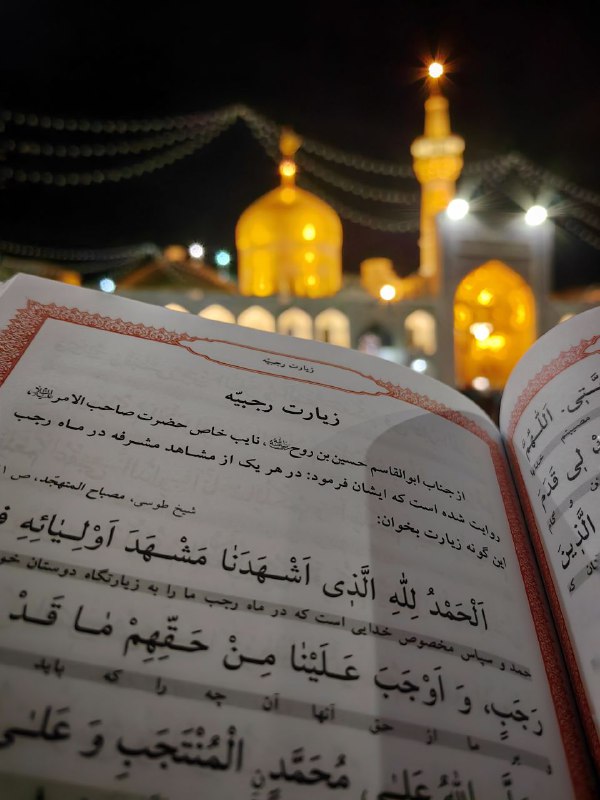 زیارت رجبیّه
زیارت رجبیّه
از جناب ابوالقاسم حسین بن روح، نایب خاص حضرت صاحب‌الامر،
روایت شده است که ایشان فرمود: در هر یک از مشاهد مشرفه در ماه رجب
این گونه زیارت بخوان:
شیخ طوسی، مصباح المتهجّد، ص
اَلْحَمْدُ لِلّٰهِ الَّذِی اَشْهَدَنٰا مَشْهَدَ اَوْلِیٰائِهِ
حمد و سپاس مخصوص خدایی است که در ماه رجب ما را به زیارتگاه دوستان
رَجَبٍ، وَ اَوْجَبَ عَلَیْنٰا مِنْ حَقِّهِمْ مٰا قَدْ
بر ما از حق آنها آن چه را که باید
اللّٰهُ عَلیٰ مُحَمَّدٍنِ الْمُنْتَجَبِ وَ عَلیٰ
اَللّٰهُمَّ
لِی قَدَمَ
الَّذِینَ